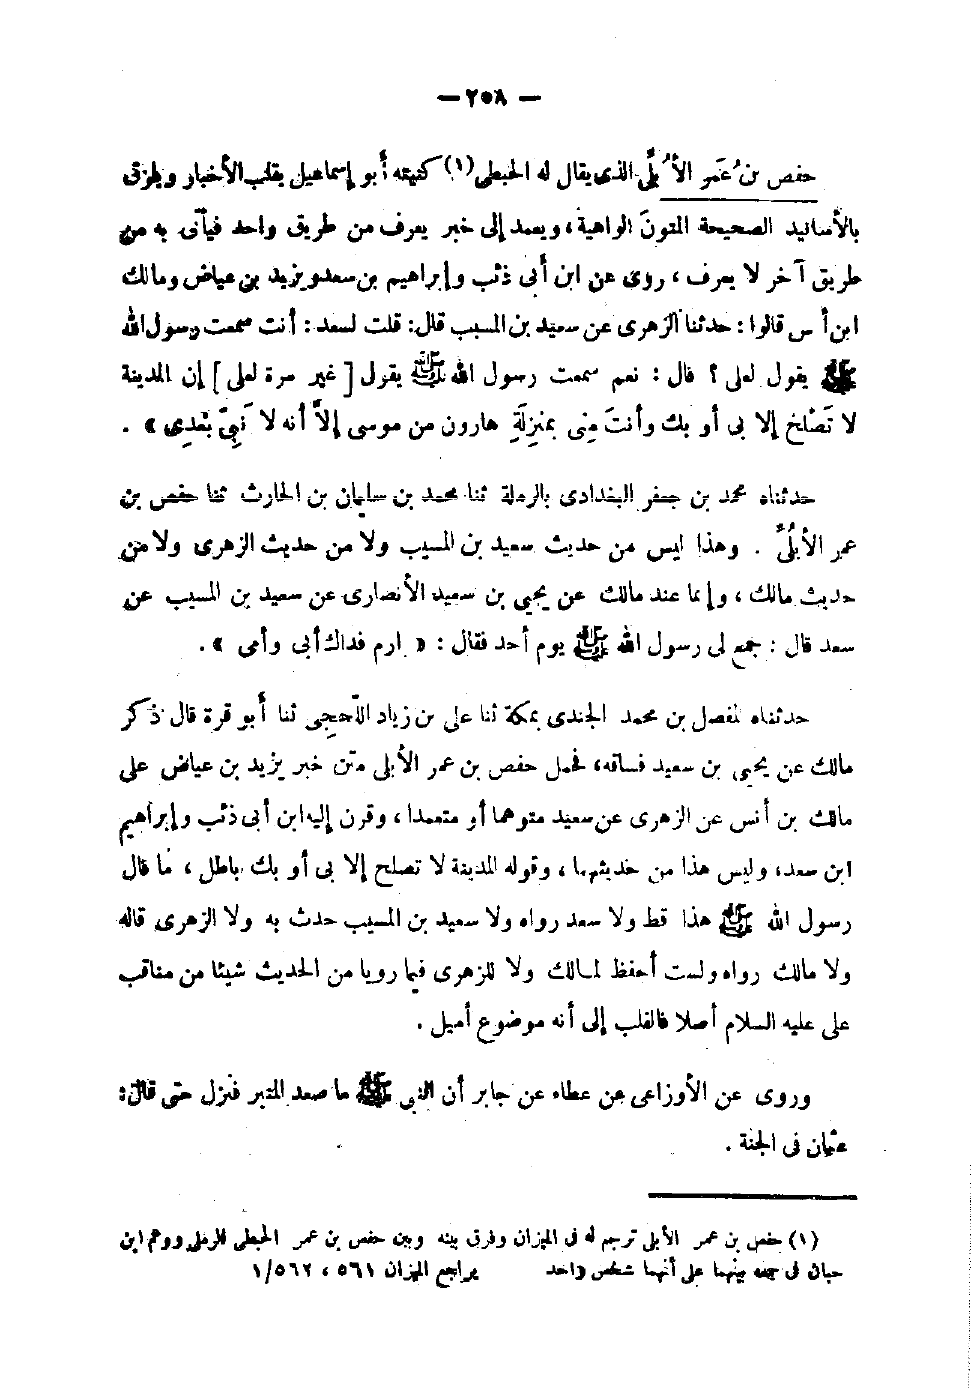 — ٢٥٨ —
حفص بن عُمَر الأُبُلِّى الذى يقال له الحبطى (١) كنيته أبو إسماعيل يقلب الأخبار ويلزق
بالأسانيد الصحيحة المتونَ الواهية، ويعمد إلى خبر يعرف من طريق واحد فيأتى به من
طريق آخر لا يعرف، روى عن ابن أبى ذئب وإبراهيم بن سعد ويزيد بن عياض ومالك
ابن أ س قالوا: حدثنا الزهرى عن سعيد بن المسيب قال: قلت لسعد: أنت سمعت رسول الله
ﷺ يقول لعلى؟ قال: نعم سمعت رسول الله ﷺ يقول [غير مرة لعلى] إن المدينة
لا تَصْلح إلا بى أو بك وأنتَ مِنى بمنزِلَةِ هارون من موسى إلاَّ أنه لا نَبِىَّ بَعْدِى».
حدثناه محمد بن جعفر البغدادى بالرملة ثنا محمد بن سليمان بن الحارث ثنا حفص بن
عمر الأبُلِّى. وهذا ليس من حديث سعيد بن المسيب ولا من حديث الزهرى ولا من
حديث مالك، وإنما عند مالك عن يحيى بن سعيد الأنصارى عن سعيد بن المسيب عن
سعد قال: جمع لى رسول الله ﷺ يوم أحد فقال: «ارم فداك أبى وأمى».
حدثناه المفضل بن محمد الجندى بمكة ثنا على بن زياد اللَّحجِى ثنا أبو قرة قال ذكر
مالك عن يحيى بن سعيد فساقه، فحمل حفص بن عمر الأبلى متن خبر يزيد بن عياض على
مالك بن أنس عن الزهرى عن سعيد متوهما أو متعمدا، وقرن إليه ابن أبى ذئب وإبراهيم
ابن سعد، وليس هذا من حديثهما، وقوله المدينة لا تصلح إلا بى أو بك باطل، ما قال
رسول الله ﷺ هذا قط ولا سعد رواه ولا سعيد بن المسيب حدث به ولا الزهرى قاله
ولا مالك رواه ولست أحفظ لمالك ولا للزهرى فيما رويا من الحديث شيئا من مناقب
على عليه السلام أصلا فالقلب إلى أنه موضوع أميل.
وروى عن الأوزاعى عن عطاء عن جابر أن النبى ﷺ ما صعد المنبر فنزل حتى قال:
عثمان فى الجنة.
(١) حفص بن عمر الأبلى ترجم له فى الميزان وفرق بينه وبين حفص بن عمر الحبطى الرملى ووهم ابن
حبان فى جمعه بينهما على أنهما شخص واحد يراجع الميزان ٥٦١، ١/٥٦٢